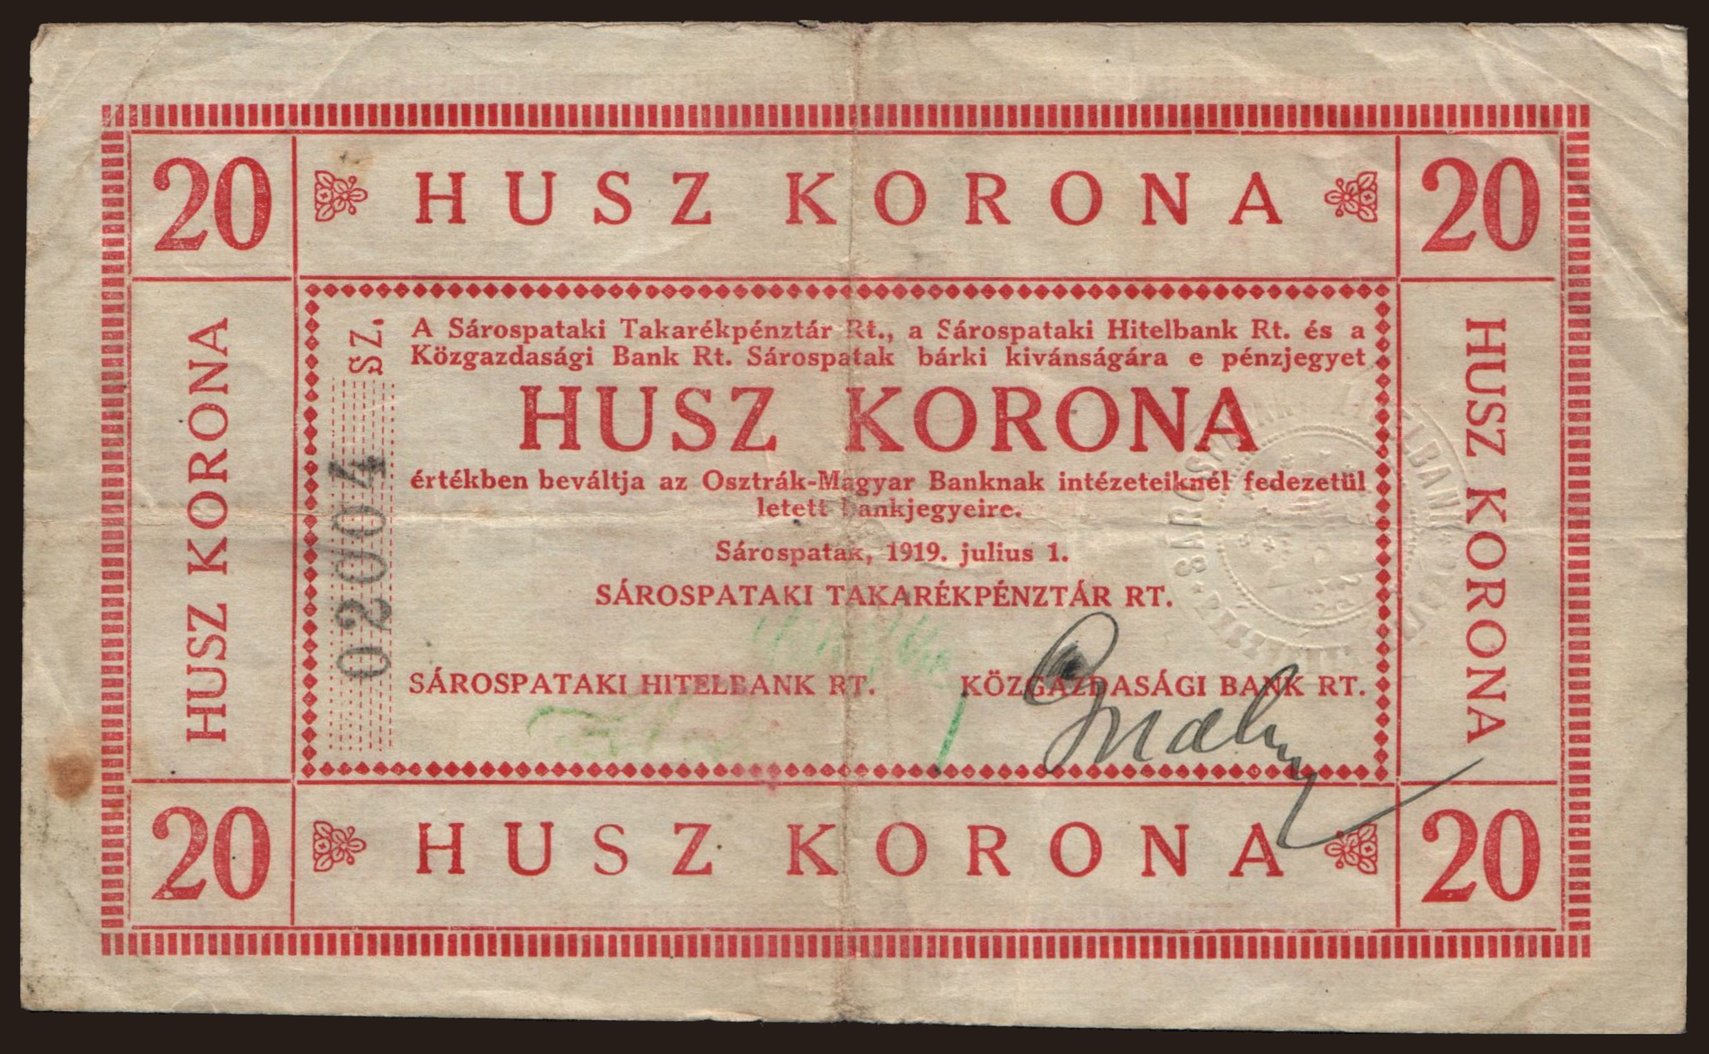 20 HUSZ KORONA 20
HUSZ KORONA
SZ. 02004
A Sárospataki Takarékpénztár Rt., a Sárospataki Hitelbank Rt. és a
Közgazdasági Bank Rt. Sárospatak bárki kivánságára e pénzjegyet
HUSZ KORONA
értékben beváltja az Osztrák-Magyar Banknak intézeteiknél fedezetül
letett bankjegyeire.
Sárospatak, 1919. julius 1.
SÁROSPATAKI TAKARÉKPÉNZTÁR RT.
SÁROSPATAKI HITELBANK RT. KÖZGAZDASÁGI BANK RT.
HUSZ KORONA
20 HUSZ KORONA 20